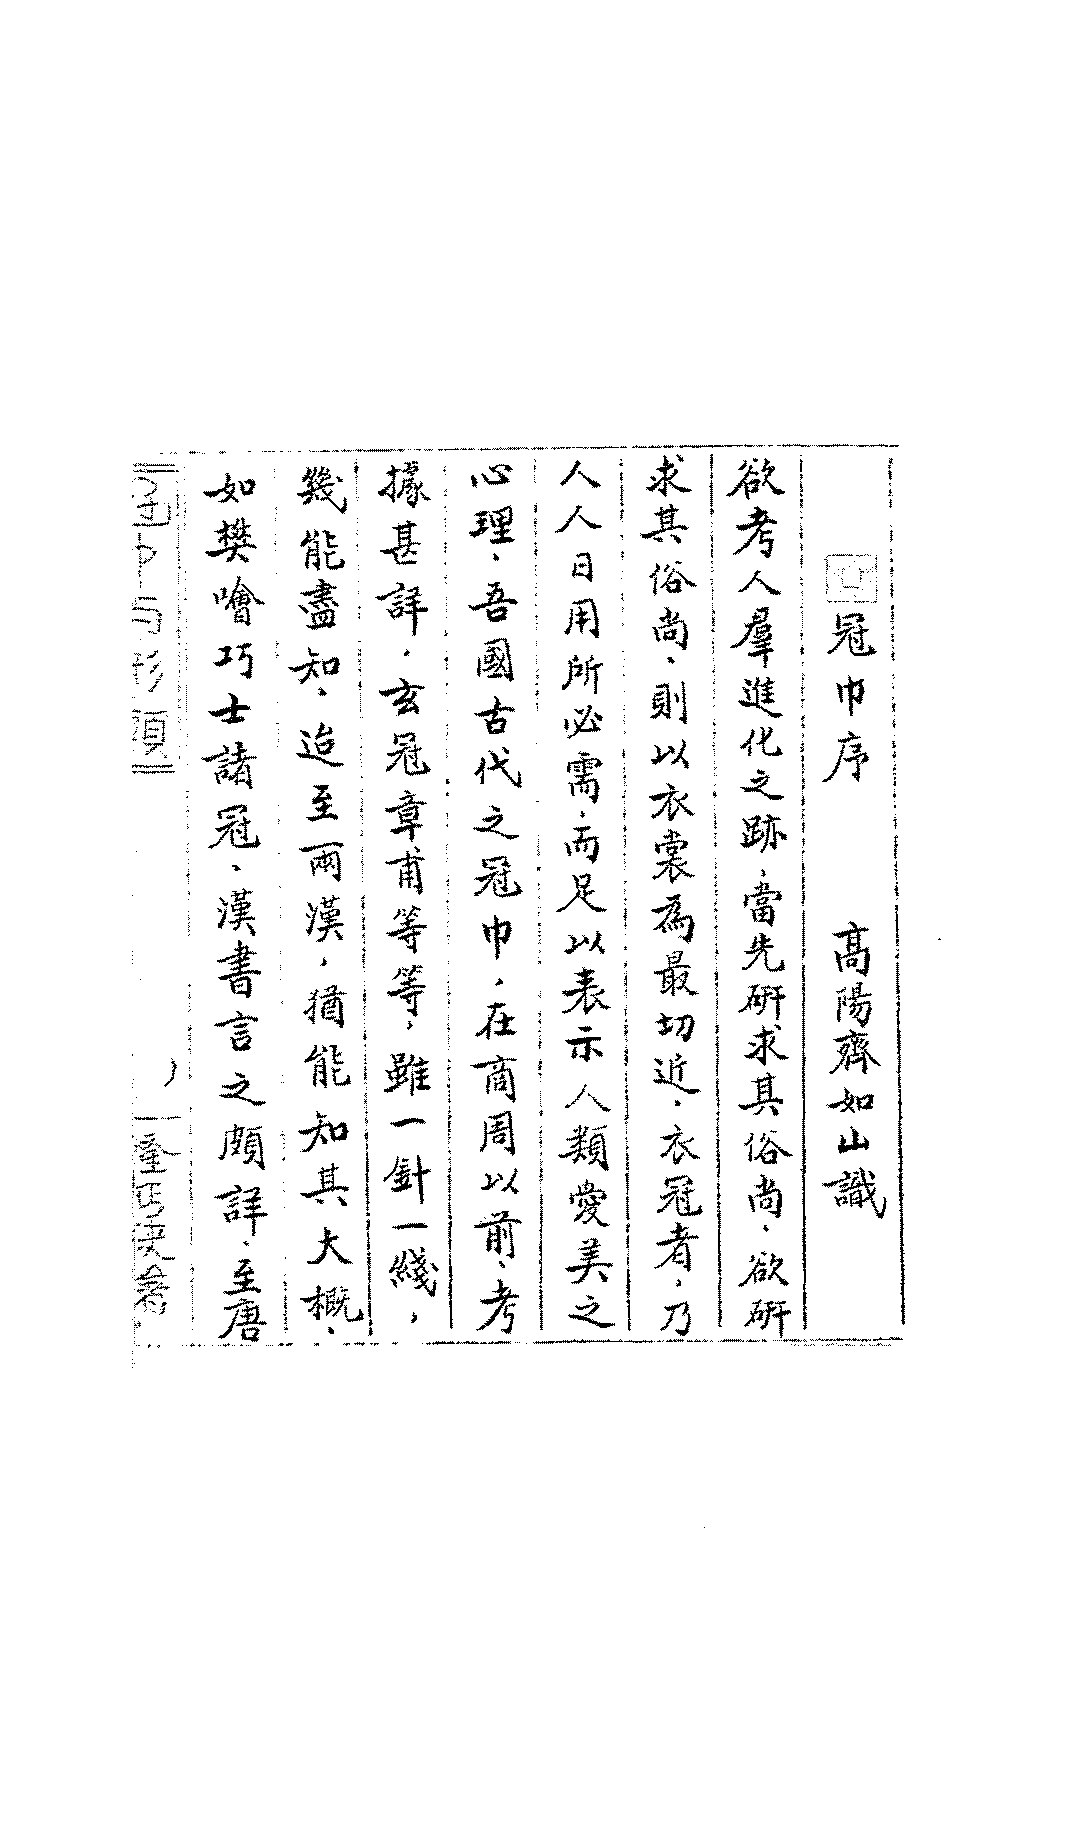 冠巾序　高陽齊如山識
欲考人羣進化之跡、當先研求其俗尚、欲研
求其俗尚、則以衣裳為最切近、衣冠者、乃
人人日用所必需、而足以表示人類愛美之
心理、吾國古代之冠巾，在商周以前、考
據甚詳，玄冠章甫等等，雖一針一綫，
幾能盡知、迨至兩漢，猶能知其大概、
如樊噲巧士諸冠、漢書言之頗詳、至唐
冠巾与形頭
一